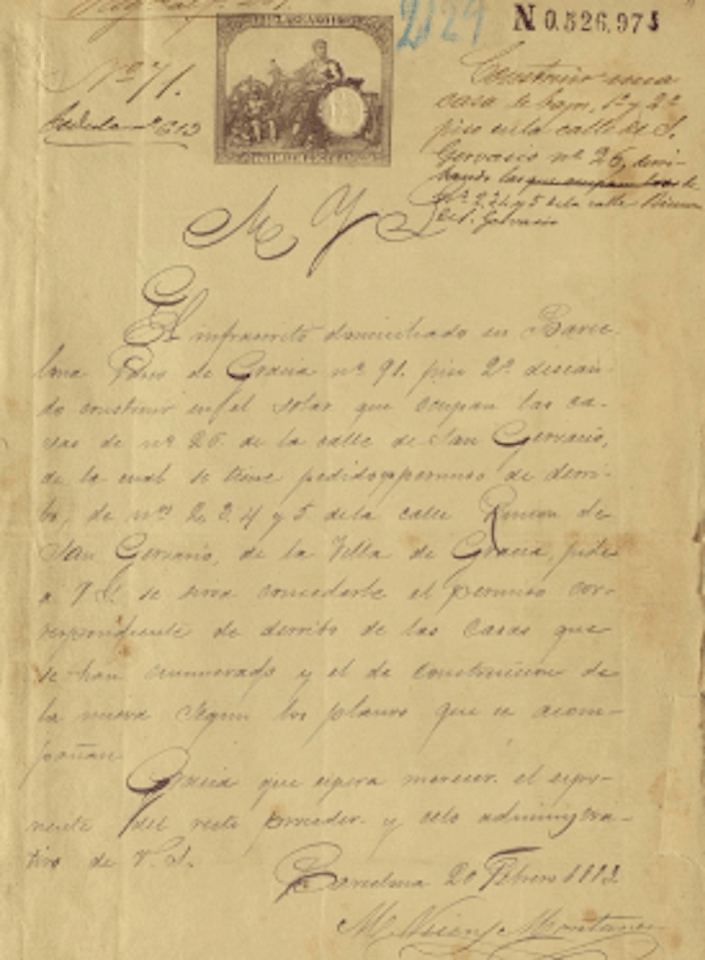 Nº 71.
2129
N 0.526,97
Construir una
casa de bajos, 1º y 2º
piso en la calle de S.
Gervasio nº 26, derri-
bando las que ocupan los de
nº 2, 3, 4 y 5 de la calle Rincon
de S. Gervasio
M Y S
El infrascrito domiciliado en Barce-
lona Paseo de Gracia nº 91. piso 2º. desean-
do construir en el solar que ocupan las ca-
sas de nº 26. de la calle de San Gervasio,
de la cual se tiene pedido permiso de derri-
bo, de nos 2, 3, 4 y 5 de la calle Rincon de
San Gervasio, de la Villa de Gracia, pide
a V. S. se sirva concederle el permiso cor-
respondiente de derribo de las casas que
se han enumerado y el de construccion de
la nueva segun los planos que se acom-
pañan.
Gracia que espera merecer. el expo-
nente del recto proceder. y celo administra-
tivo de V. S.
Barcelona 20 Febrero 188
M. Vicens Montaner